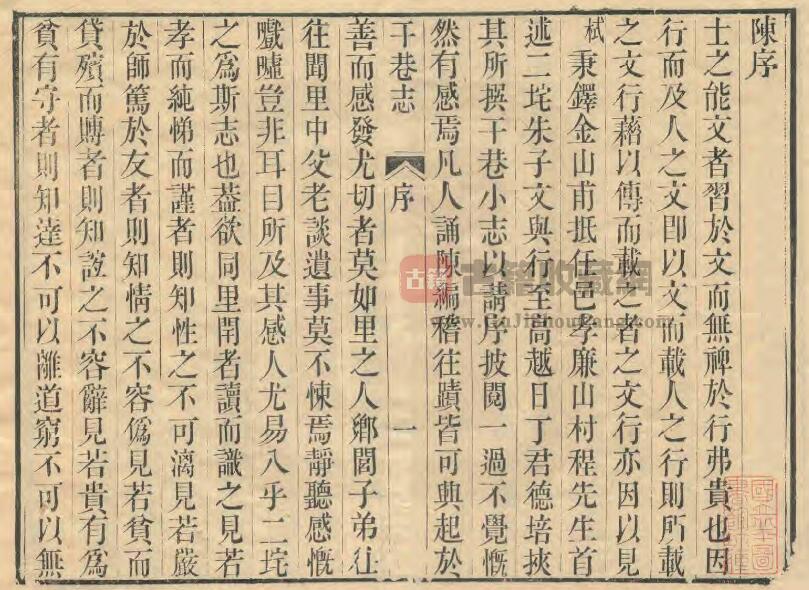 陳序
士之能文者習於文而無裨於行弗貴也因
行而及人之文卽以文而載人之行則所載
之文行藉以傳而載之者之文行亦因以見
栻秉鐸金山甫抵任邑孝廉山村程先生首
述二垞朱子文與行至高越日丁君德培挾
其所撰干巷小志以請序披閱一過不覺慨
然有感焉凡人誦陳編稽往蹟皆可興起於
干巷志 序 一
善而感發尤切者莫如里之人鄉閭子弟往
往聞里中父老談遺事莫不悚焉靜聽感慨
戲噓豈非耳目所及其感人尤易入乎二垞
之爲斯志也葢欲同里閈者讀而識之見若
孝而純悌而謹者則知性之不可漓見若嚴
於師篤於友者則知情之不容僞見若貧而
貸殯而賻者則知誼之不容辭見若貴有爲
貧有守者則知達不可以離道窮不可以無
古籍
古籍收藏網
www.GuJiShouCang.com